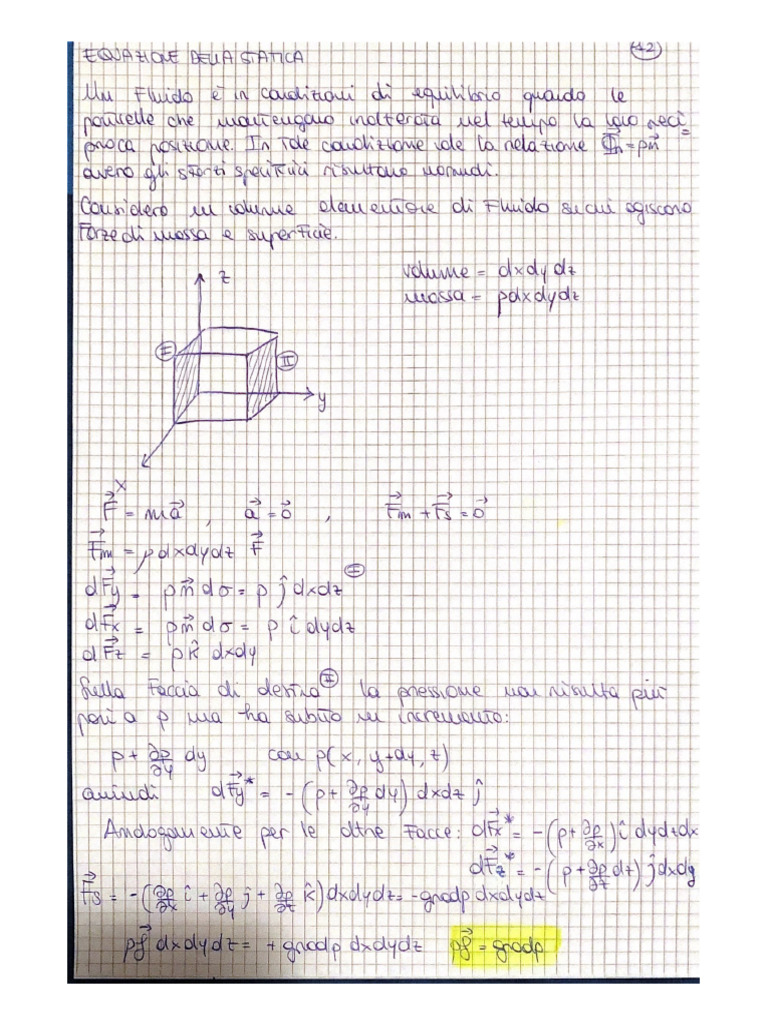 EQUAZIONE DELLA STATICA
12
Un Fluido è in condizioni di equilibrio quando le
particelle che mantengano inalterata nel tempo la loro reci=
proca posizione. In tale condizione vale la relazione Φ⃗n=pn⃗
ovvero gli sforzi specifici risultano normali.
Considero un volume elementare di Fluido su cui agiscono
Forze di massa e superficie.
volume = dxdydz
massa = ρdxdydz
z
I
II
y
x
F⃗ = ma⃗ , a⃗ = 0⃗ , F⃗m + F⃗s = 0⃗
F⃗m = ρdxdydz F⃗
dF⃗y = pn⃗dσ = p ĵ dxdz I
dF⃗x = pn⃗dσ = p î dydz
dF⃗z = pk̂ dxdy
Sulla Faccia di destra II la pressione non risulta più
pari a p ma ha subito un incremento:
p + ∂p/∂y dy con p(x, y+dy, z)
quindi dF⃗y* = -(p + ∂p/∂y dy) dxdz ĵ
Analogamente per le altre Facce: dF⃗x* = -(p + ∂p/∂x) î dydzdx
dF⃗z* = -(p + ∂p/∂z dz) ĵ dxdy
F⃗s = -(∂p/∂x î + ∂p/∂y ĵ + ∂p/∂z k̂) dxdydz = -gradp dxdydz
ρf⃗ dxdydz = + gradp dxdydz ρf⃗ = gradp